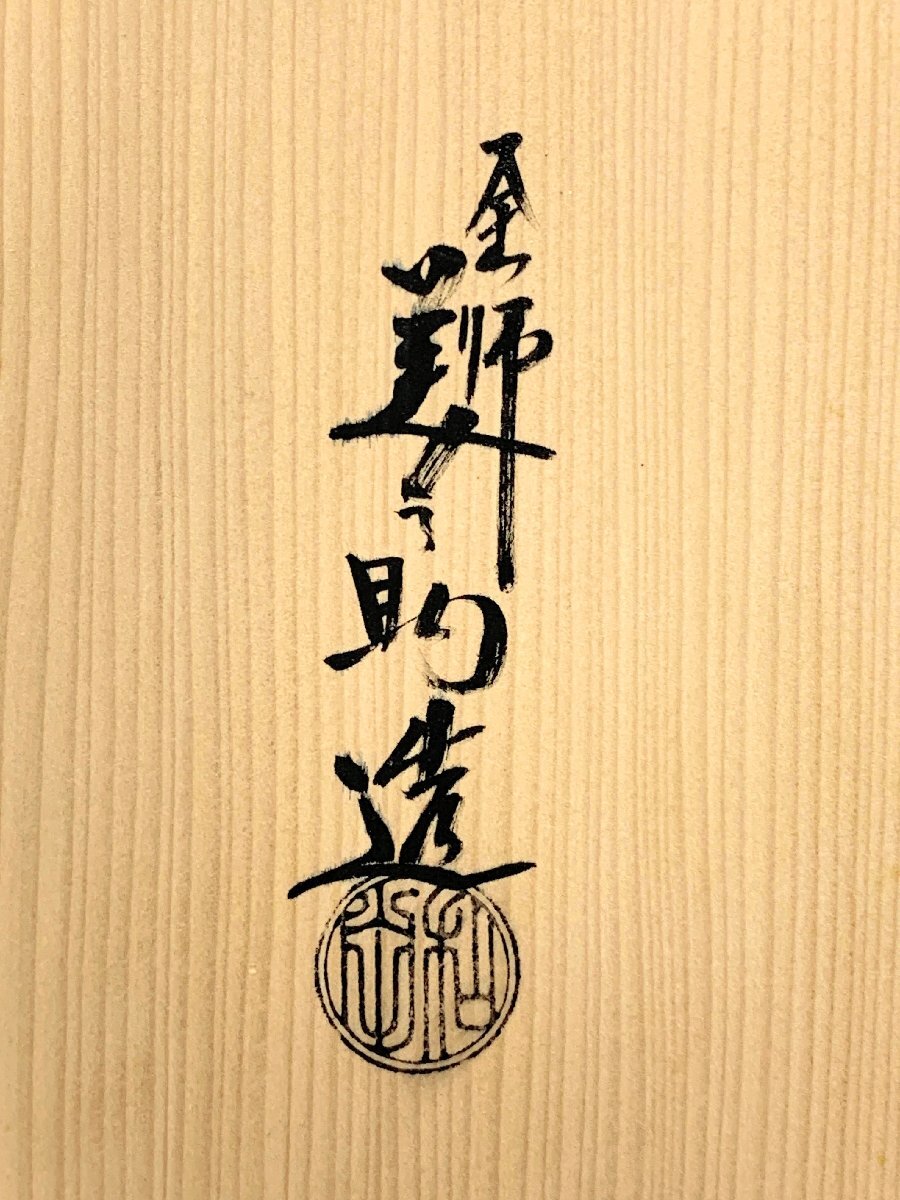 釜師
美之助造